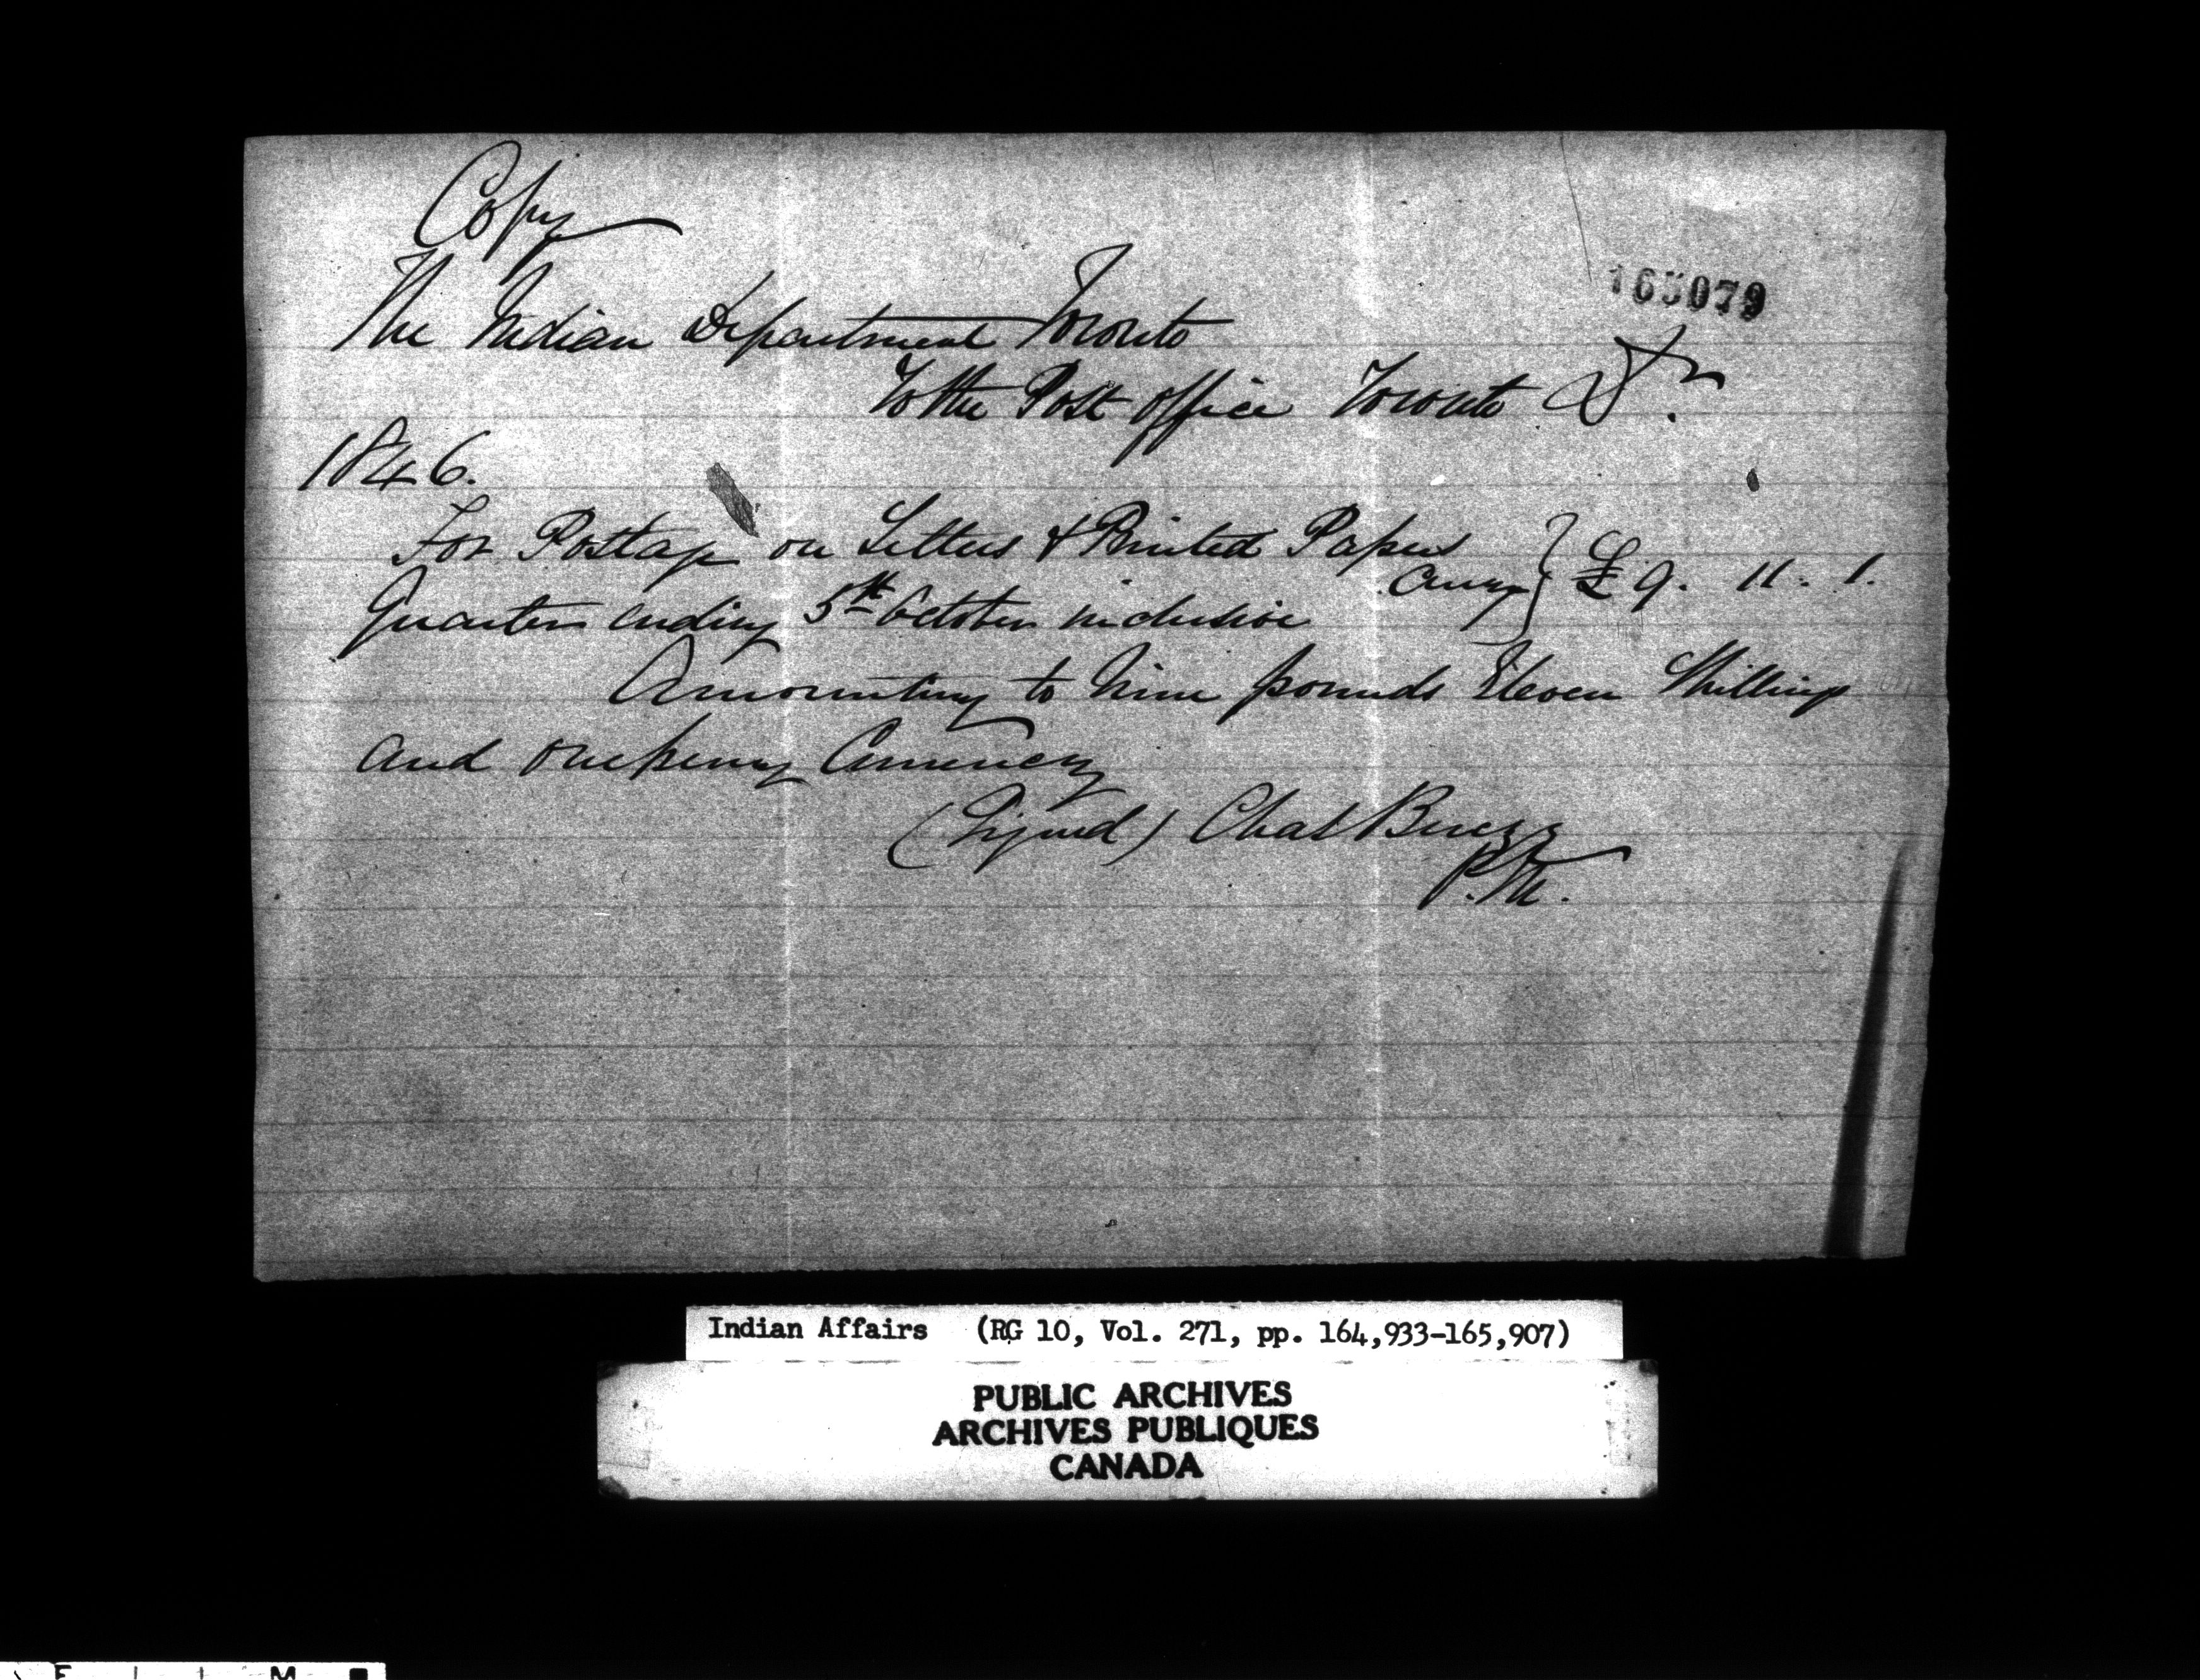 Copy
165079
The Indian Department Toronto
To the Post Office Toronto Dr.
1846.
For Postage on Letters & Printed Papers
Curry } £9. 11. 1.
Quarter ending 5th October inclusive
Amounting to Nine pounds Eleven Shillings
and one penny Currency
(Signed) Chas Berczy
P.M.
Indian Affairs (RG 10, Vol. 271, pp. 164,933-165,907)
PUBLIC ARCHIVES
ARCHIVES PUBLIQUES
CANADA